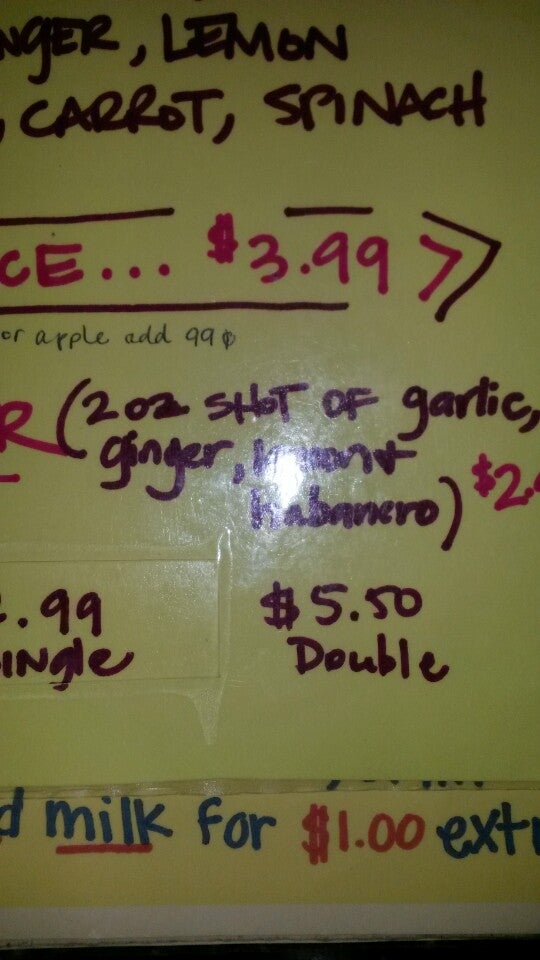 NGER, LEMON
, CARROT, SPINACH
CE... $3.99
or apple add 99¢
R (2oz SHOT OF garlic,
ginger, lemon +
habanero) $2.
.99 $5.50
ingle Double
d milk for $1.00 extr